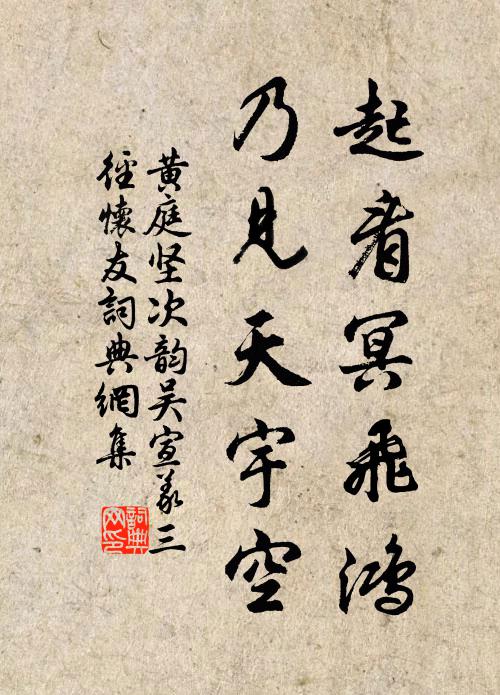 起看冥飛鴻
乃見天宇空
黄庭坚次韵吴宣义三
徑懷友詞典網集
詞典
网印